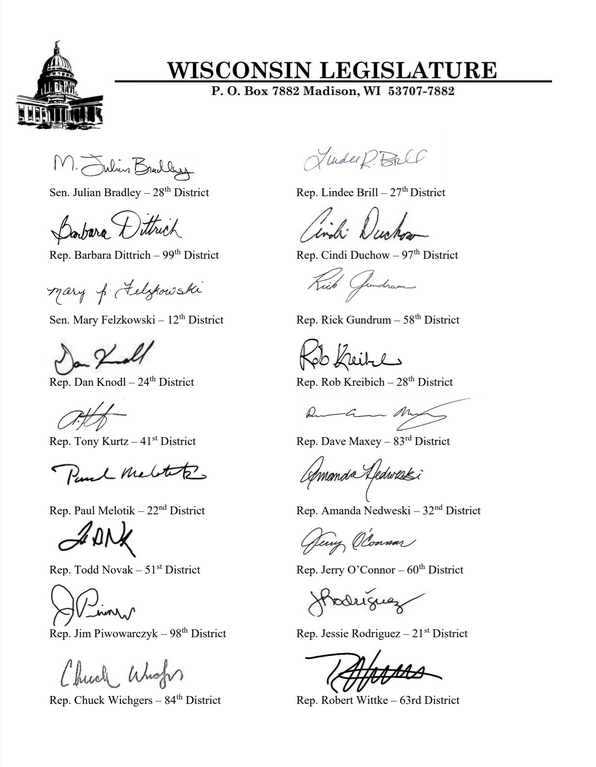 WISCONSIN LEGISLATURE
P. O. Box 7882 Madison, WI 53707-7882
M. Julius Bradley
Sen. Julian Bradley – 28th District
Lindee R. Brill
Rep. Lindee Brill – 27th District
Barbara Dittrich
Rep. Barbara Dittrich – 99th District
Cindi Duchow
Rep. Cindi Duchow – 97th District
Mary J. Felzkowski
Sen. Mary Felzkowski – 12th District
Rick Gundrum
Rep. Rick Gundrum – 58th District
Dan Knodl
Rep. Dan Knodl – 24th District
Rob Kreibich
Rep. Rob Kreibich – 28th District
Rep. Tony Kurtz – 41st District
Rep. Dave Maxey – 83rd District
Paul Melotik
Rep. Paul Melotik – 22nd District
Amanda Nedweski
Rep. Amanda Nedweski – 32nd District
Rep. Todd Novak – 51st District
Jerry O'Connor
Rep. Jerry O’Connor – 60th District
Rep. Jim Piwowarczyk – 98th District
JRodríguez
Rep. Jessie Rodriguez – 21st District
Chuck Wichgers
Rep. Chuck Wichgers – 84th District
Rep. Robert Wittke – 63rd District